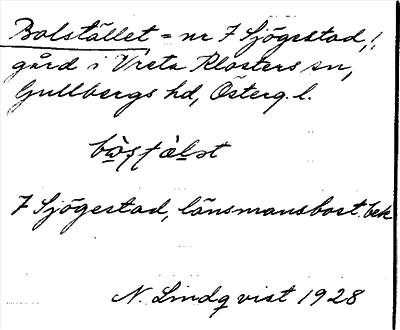 Bolstället = nr 7 Sjögestad, !
gård i Vreta Klosters sn,
Gullbergs hd, Österg. l.
7 Sjögestad, länsmansbost. bek
N. Lindqvist 1928